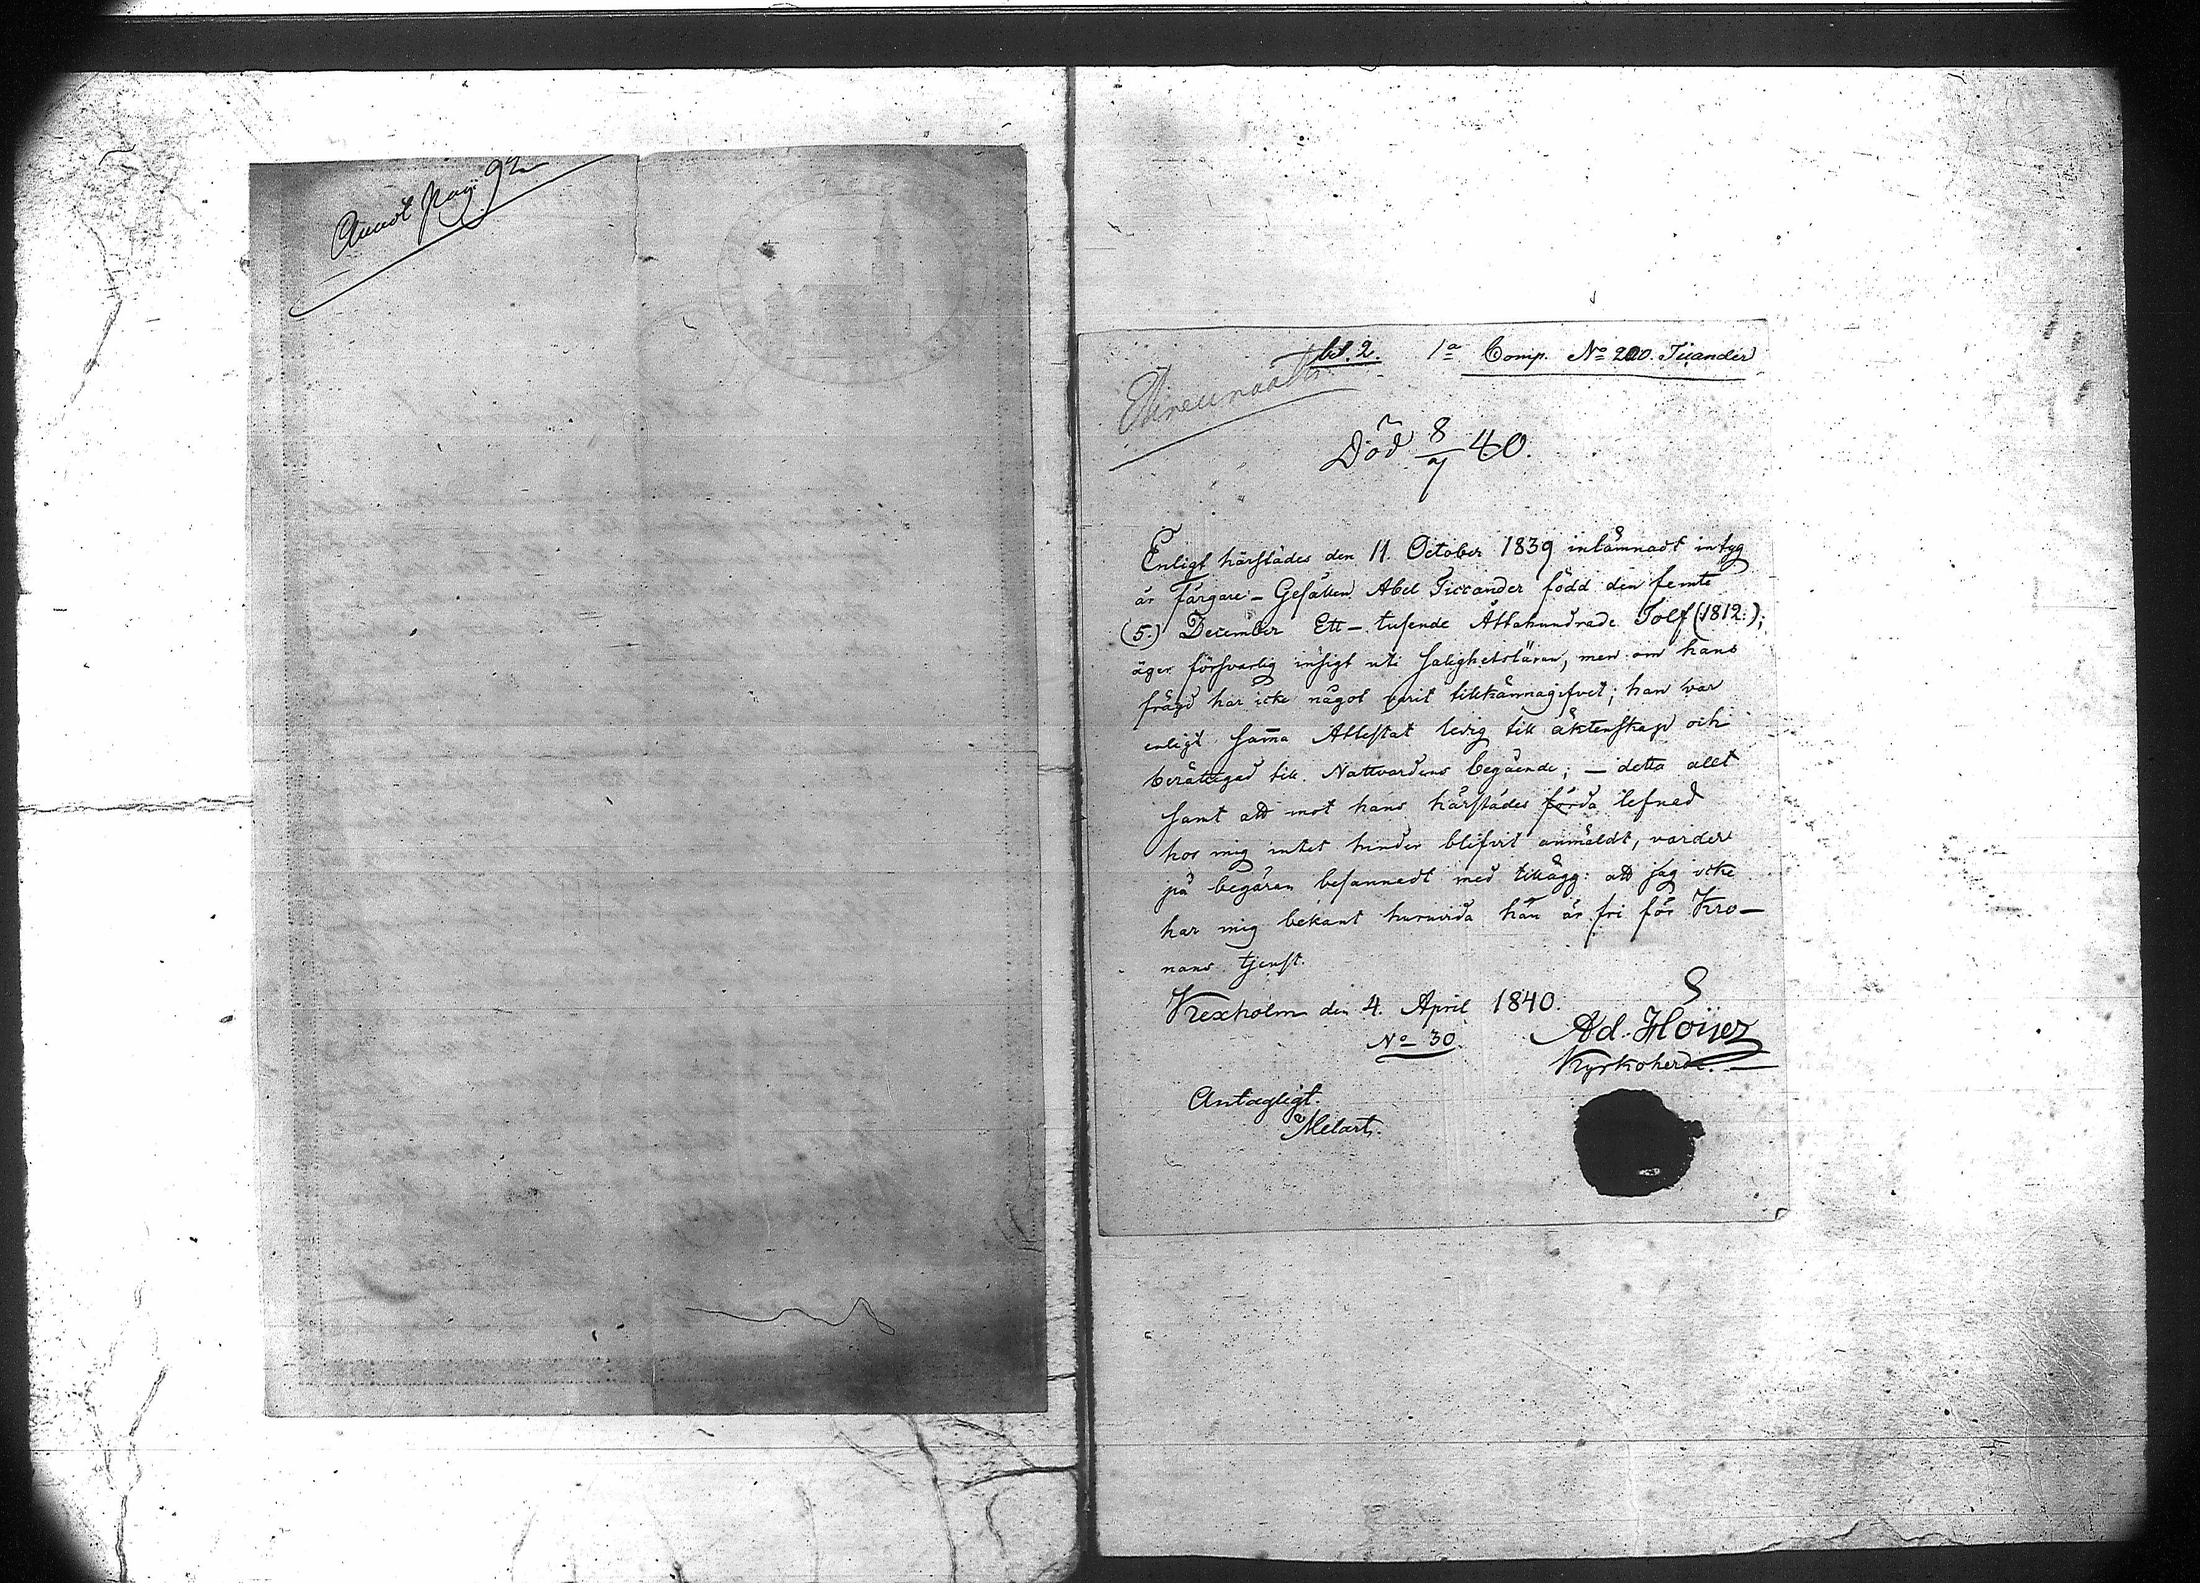 Annot pag 92
bil. 2. 1a Comp. No 200. Tiiander
Död 8/7 40.
Enligt härstädes den 11. October 1839 inlämnadt intyg
är Färgare-Gesällen Abel Ticcander född den femte
(5.) December Ett-tusende Åttahundrade Tolf (1812:);
äger försvarlig insigt uti salighetsläran, men om hans
frägd har icke något varit tillkännagifvet; han var
enligt samma Attestat ledig till äktenskap och
berättigad till Nattvardens begående; — detta allt
samt att mot hans härstädes förda lefnad
hos mig intet hinder blifvit anmäldt, varder
på begäran besannadt med tillägg: att jag icke
har mig bekant huruvida han är fri för Kro-
nans tjenst.
Kexholm den 4. April 1840.
No 30. Ad. Höijer
Kyrkoherde.
Antagligt.
Melart.